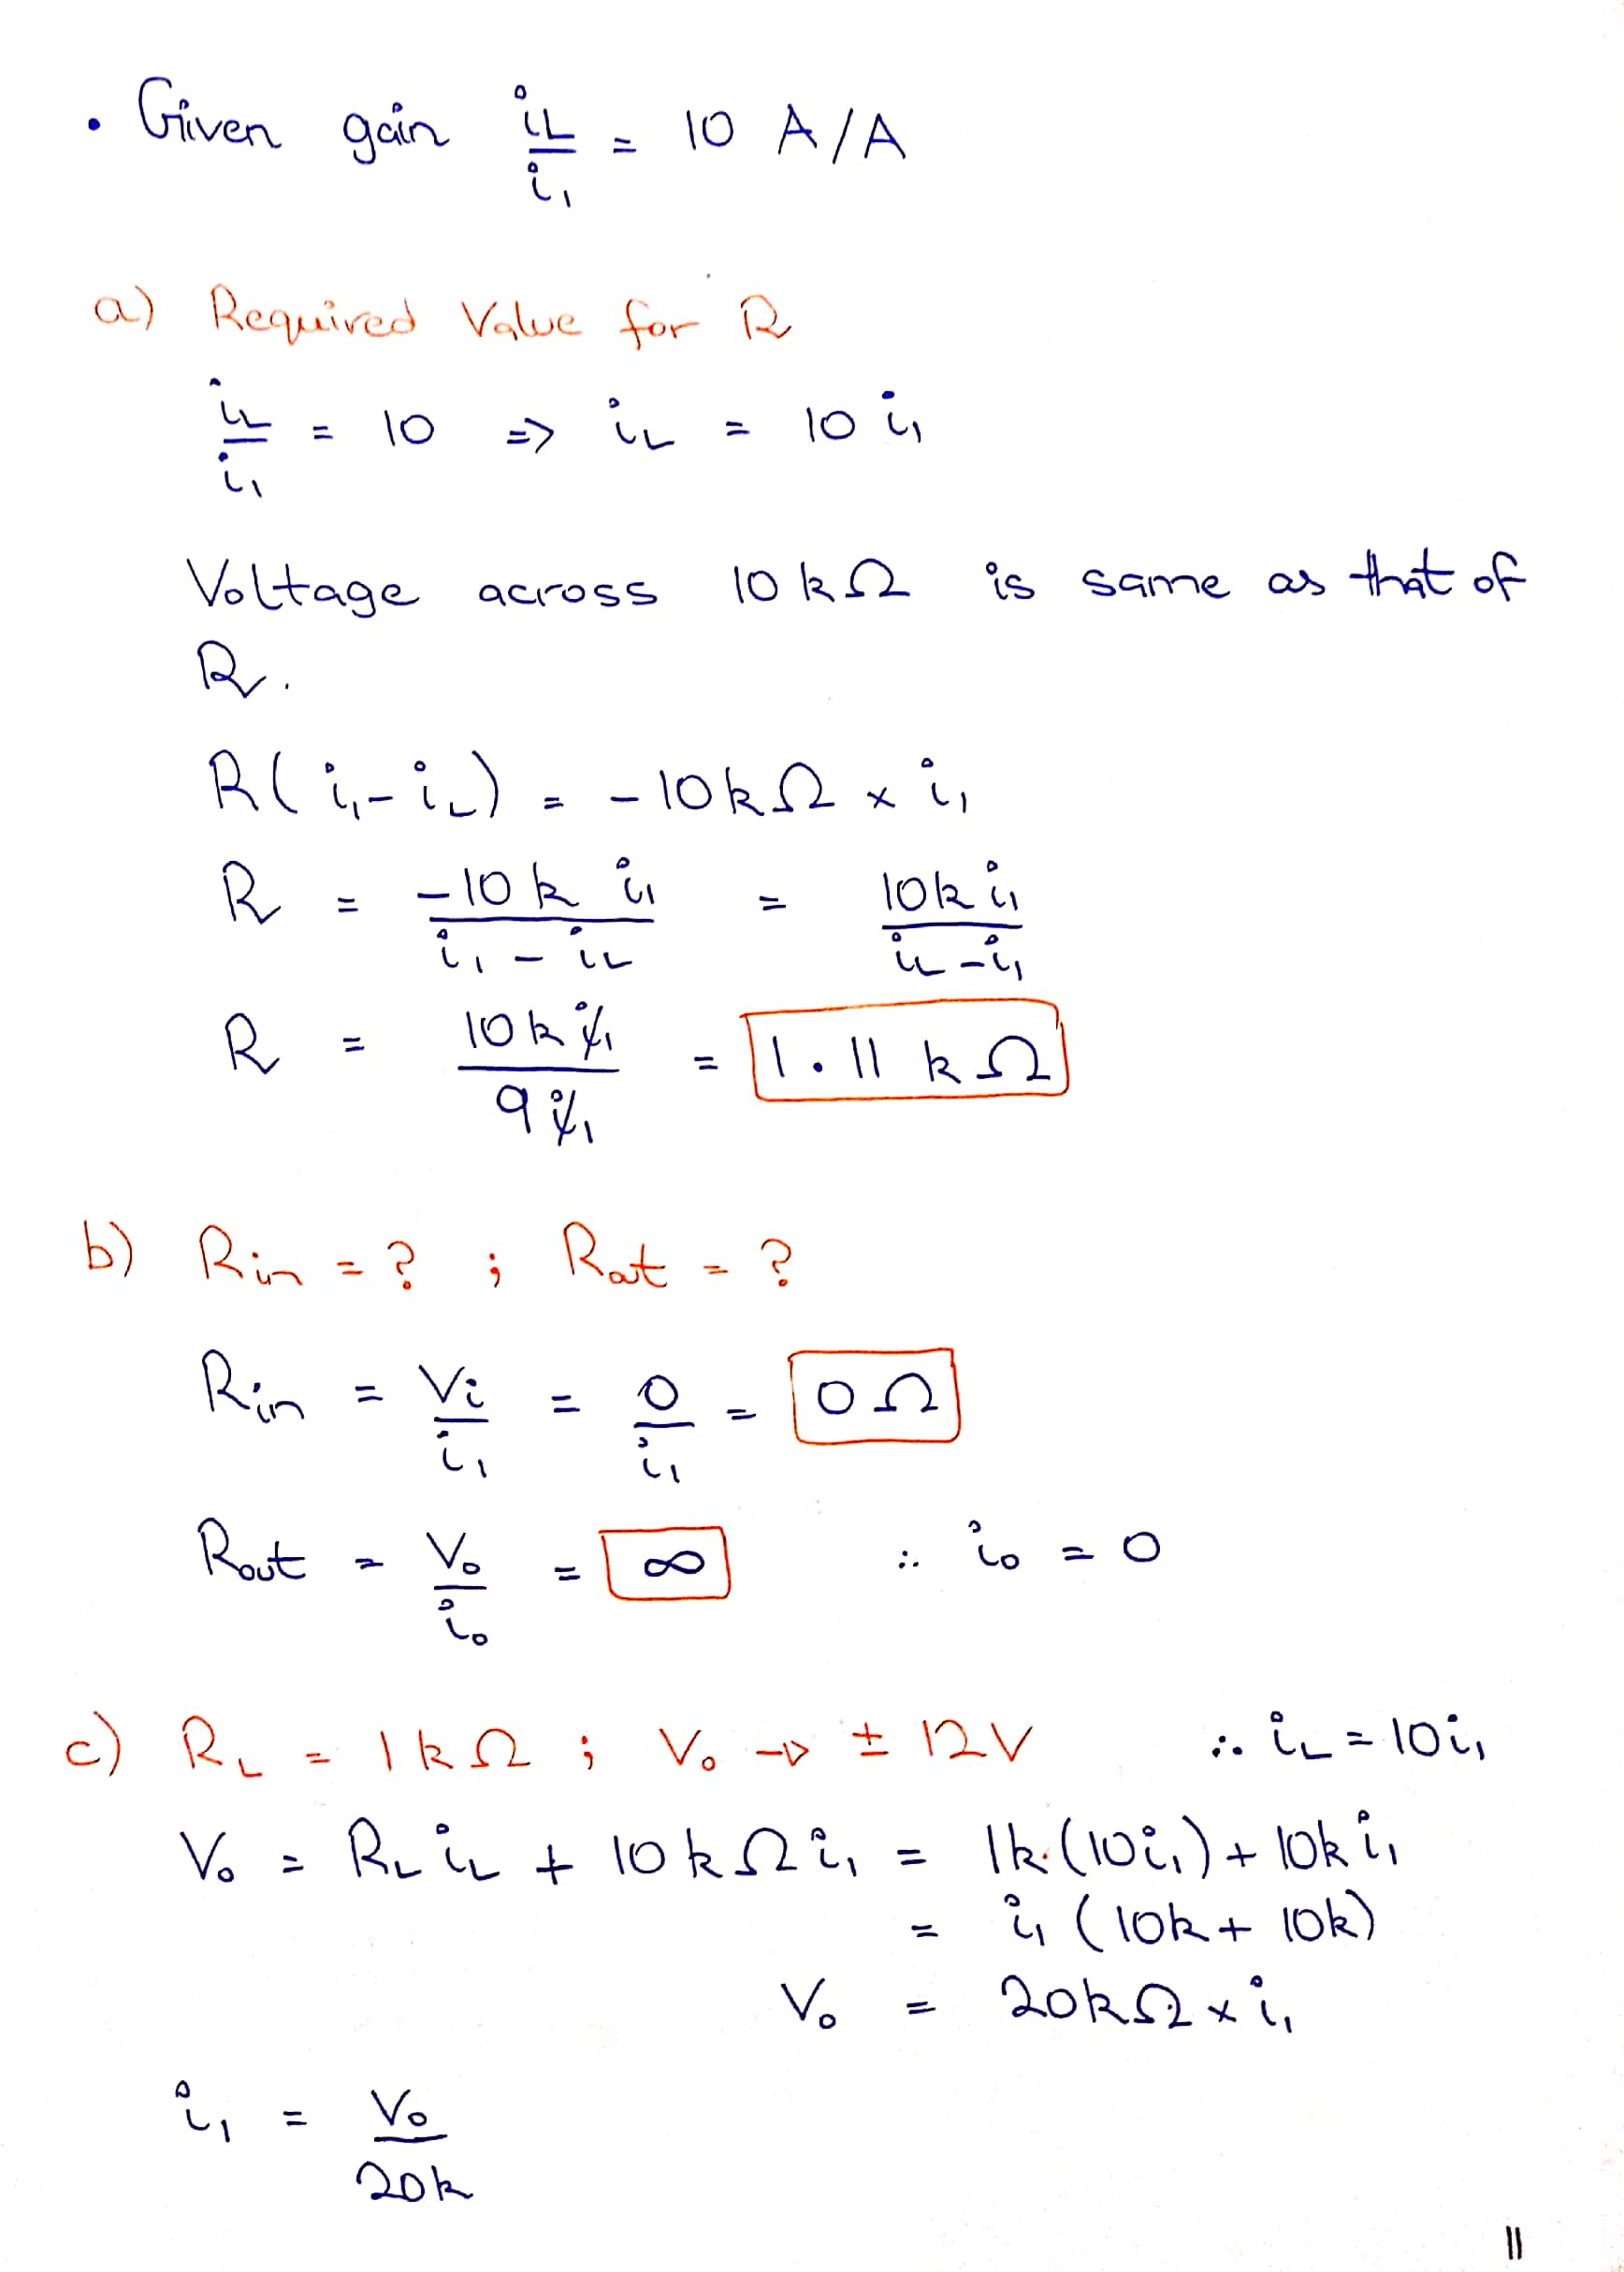 • Given gain iL/i1 = 10 A/A
a) Required Value for R
iL/i1 = 10 => iL = 10 i1
Voltage across 10kΩ is same as that of
R.
R(i1-iL) = -10kΩ x i1
R = -10k i1/i1-iL = 10k i1/iL-i1
R = 10k i1/9 i1 = 1.11 kΩ
b) Rin = ? ; Rout = ?
Rin = Vi/i1 = 0/i1 = 0Ω
Rout = Vo/io = ∞ ∴ io = 0
c) RL = 1kΩ ; Vo → ± 12V ∴ iL = 10i1
Vo = RL iL + 10kΩ i1 = 1k.(10i1) + 10k i1
= i1 (10k + 10k)
Vo = 20kΩ x i1
i1 = Vo/20k
11